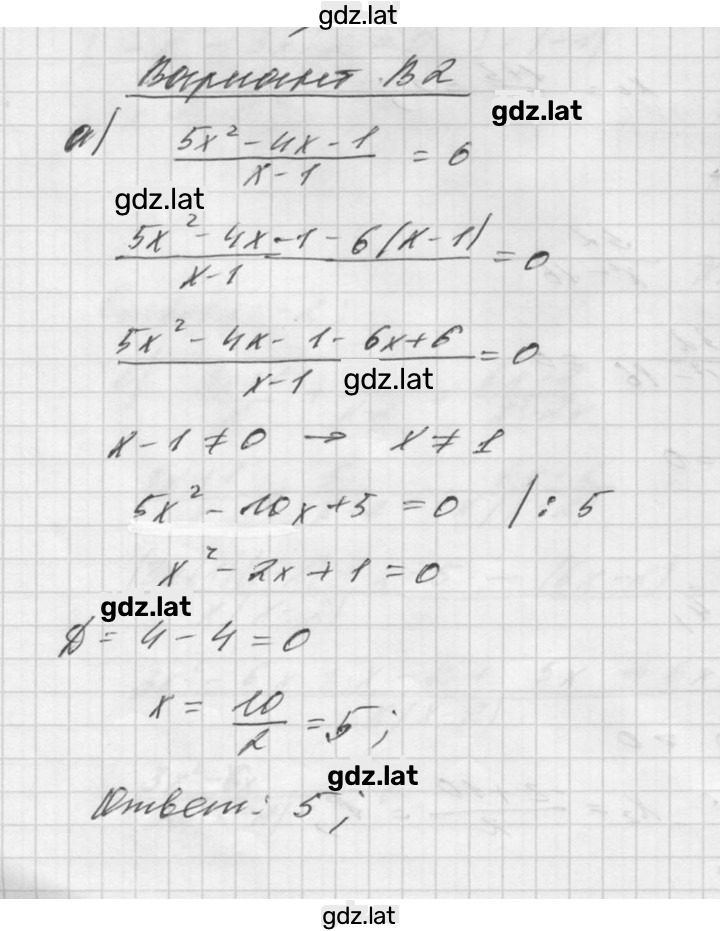 gdz.lat
Вариант В2
gdz.lat
а) (5x² - 4x - 1)/(x - 1) = 6
gdz.lat
(5x² - 4x - 1 - 6(x - 1))/(x - 1) = 0
(5x² - 4x - 1 - 6x + 6)/(x - 1) = 0
gdz.lat
x - 1 ≠ 0 → x ≠ 1
5x² - 10x + 5 = 0 | : 5
x² - 2x + 1 = 0
gdz.lat
D = 4 - 4 = 0
x = 10/2 = 5;
gdz.lat
Ответ: 5;
gdz.lat